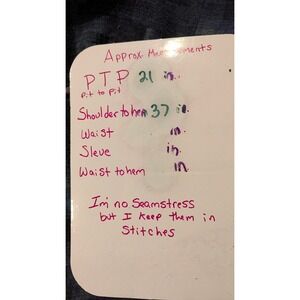 Approx Measurements
PTP 21 in.
Pit to pit
Shoulder to hem 37 in.
Waist in.
Sleve in.
Waist to hem in
I'm no Seamstress
but I keep them in
Stitches